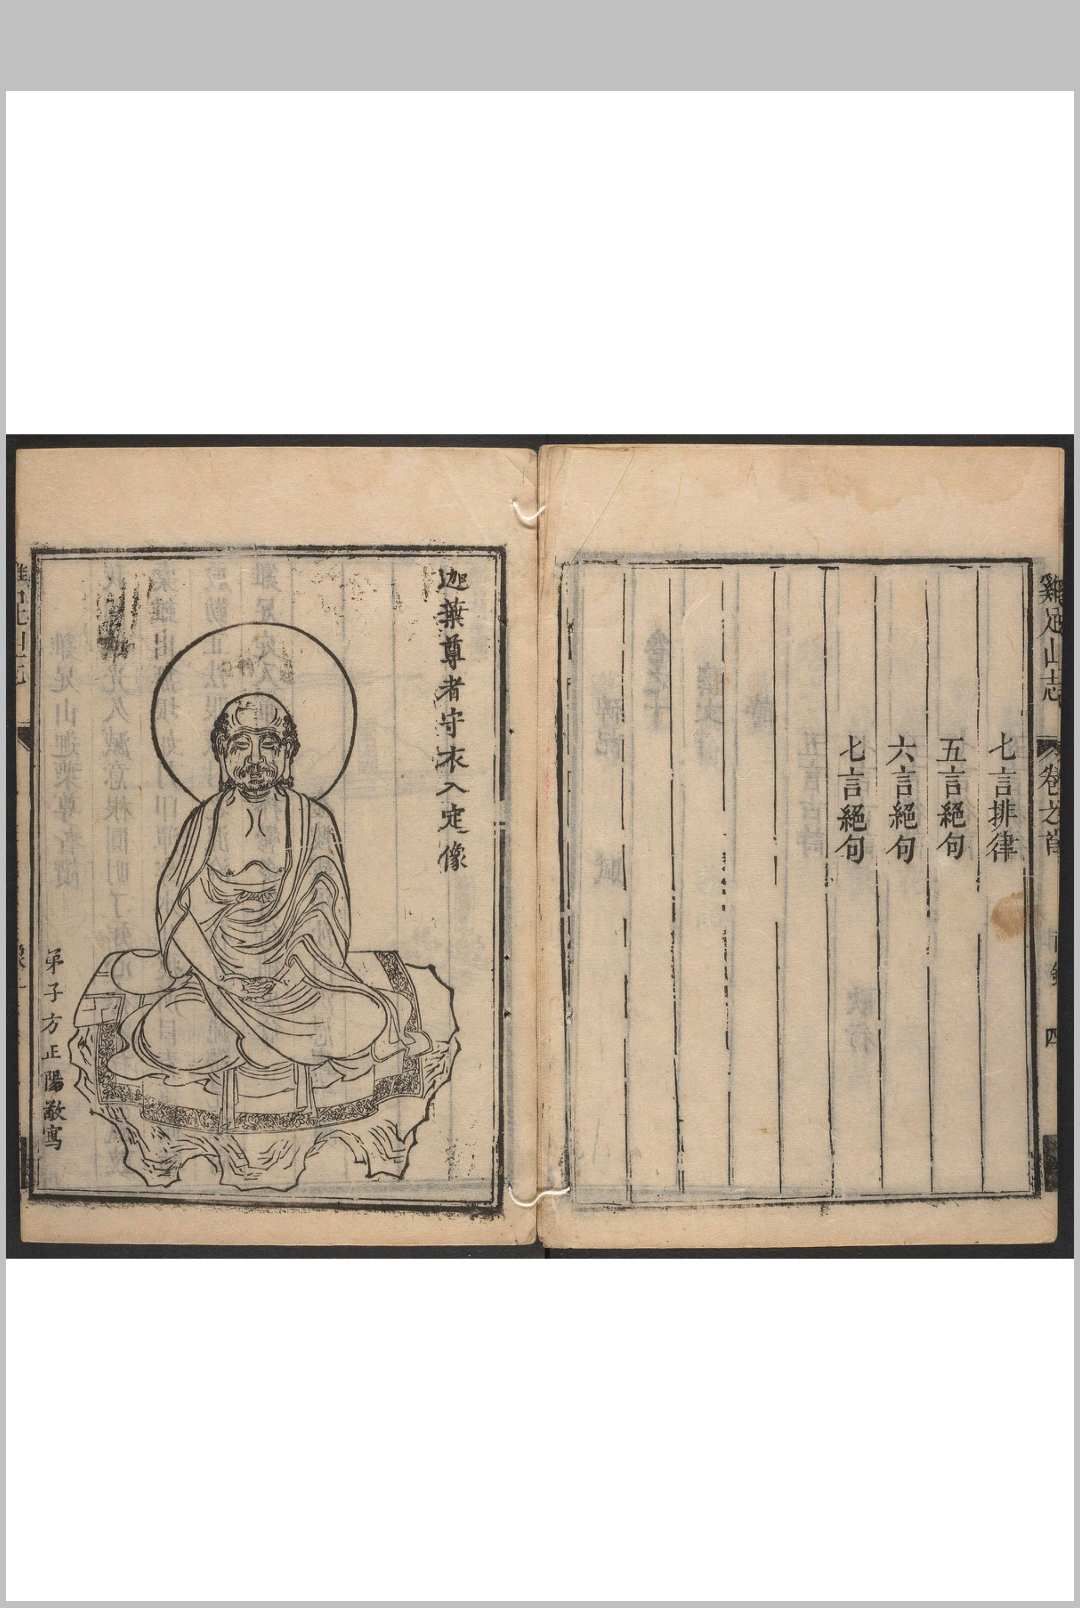 雞足山志
卷之首
四
七言排律
五言絕句
六言絕句
七言絕句
迦葉尊者守衣入定像
弟子方正陽敬寫